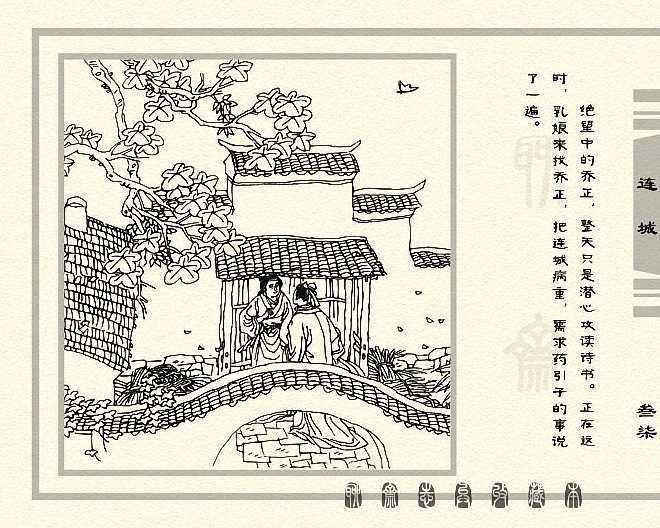 绝望中的乔正，整天只是潜心攻读诗书。正在这
时，乳娘来找乔正，把连城病重，需求药引子的事说
了一遍。
连城
叁柒
聊斋志异收藏本